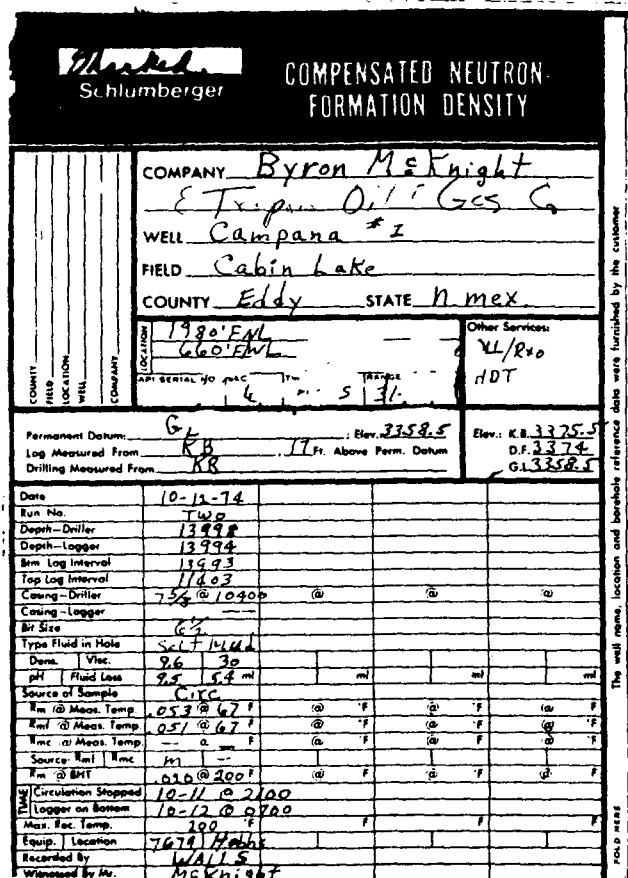 Schlumberger
COMPENSATED NEUTRON-
FORMATION DENSITY
COMPANY Byron McKnight
Oil & Gas Co
WELL Campana #1
FIELD Cabin Lake
COUNTY Eddy STATE N. mex.
COUNTY
FIELD
LOCATION
WELL
COMPANY
LOCATION
1980' FNL
660' FWL
API SERIAL NO SEC TWP RANGE
5 31
Other Services:
HDT
Permanent Datum: GL ; Elev. 3358.5
Log Measured From KB 17 Ft. Above Perm. Datum
Drilling Measured From KB
Elev.: K.B. 3375.5
D.F. 3374
G.L. 3358.5
Date 10-12-74
Run No. TWO
Depth—Driller 13998
Depth—Logger 13994
Btm Log Interval 13993
Top Log Interval 11403
Casing—Driller 7 5/8 @ 10400 @ @ @
Casing—Logger --
Bit Size 6 1/2
Type Fluid in Hole Salt Mud
Dens. Visc. 9.6 30
pH Fluid Loss 9.5 5.4 ml ml ml ml
Source of Sample Circ
Rm @ Meas. Temp. .053 @ 67 F @ °F @ °F @ F
Rmf @ Meas. Temp. .051 @ 67 F @ °F @ °F @ F
Rmc @ Meas. Temp. -- @ -- F @ °F @ °F @ F
Source: Rmf Rmc m --
Rm @ BHT .020 @ 200 F @ °F @ °F @ F
TIME
Circulation Stopped 10-11 @ 2100
Logger on Bottom 10-12 @ 0700
Max. Rec. Temp. 200 °F F F F
Equip. Location 7679 Hobbs
Recorded By WALLS
Witnessed By Mr. McKnight
The well name, location and borehole reference data were furnished by the customer
FOLD HERE